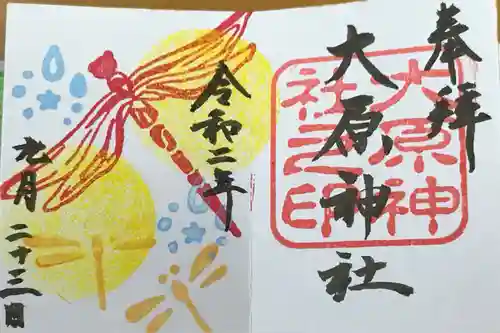 奉拝
大原神社
大原神
社之印
令和二年
九月
二十三日